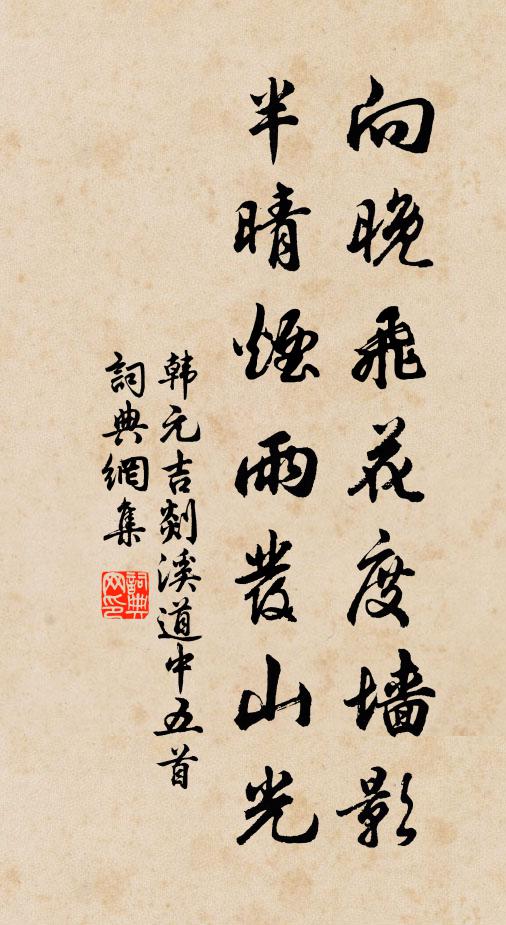 向晚飛花度墻影
半晴煙雨發山光
韩元吉剡溪道中五首
詞典網集
詞典網印